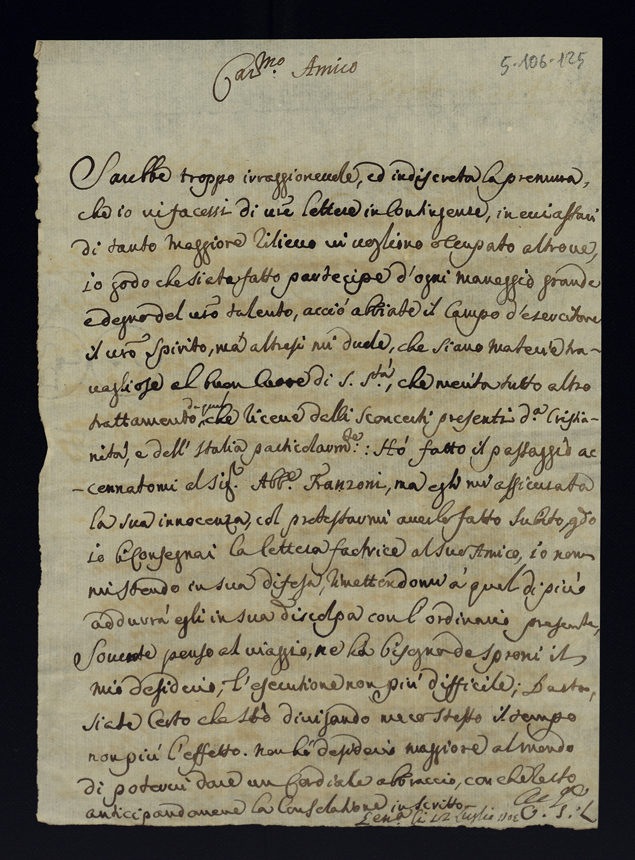 Car.mo Amico
5-106-125
Sarebbe troppo irraggionevole, ed indiscreta la premura,
che io vi facessi di vre lettere in Contingenze, in cui affari
di tanto maggiore rilievo vi vogliono occupato altrove,
io godo che siate fatto partecipe d'ogni maneggio grande
e degno del vro talento, acciò abbiate il Campo d'esercitare
il vro Spirito, ma altresi mi duole, che siano materie tra-
vagliose al buon Cuore di S. Stà, che merita tutto altro
trattamento, di quel che riceve delli sconcerti presenti d.a Cristia-
nità, e dell'Italia particolarm.te: Hò fatto il passaggio ac-
cennatomi al Sig.r Abb.e Franzoni, ma egli mi assicurata
la sua innocenza, col protestarmi averlo fatto subito, gdo
io li Consegnai la lettera fattrice al suo Amico, io non
mi stendo in sua difesa, rimettendomi à quel di più
addurrà egli in sua discolpa con l'ordinario presente,
Sovente penso al viaggio, ne ha bisogno de sproni il
mio desiderio, l'esecutione non più difficile; Basta,
siate Certo che stò divisando meco stesso il tempo
non più l'effetto. non hò desiderio maggiore al mondo
di potervi dare un Cordiale abbraccio, con che resto
anticipandomene la Consolatione in scritto
Gen.a li 12 Luglio